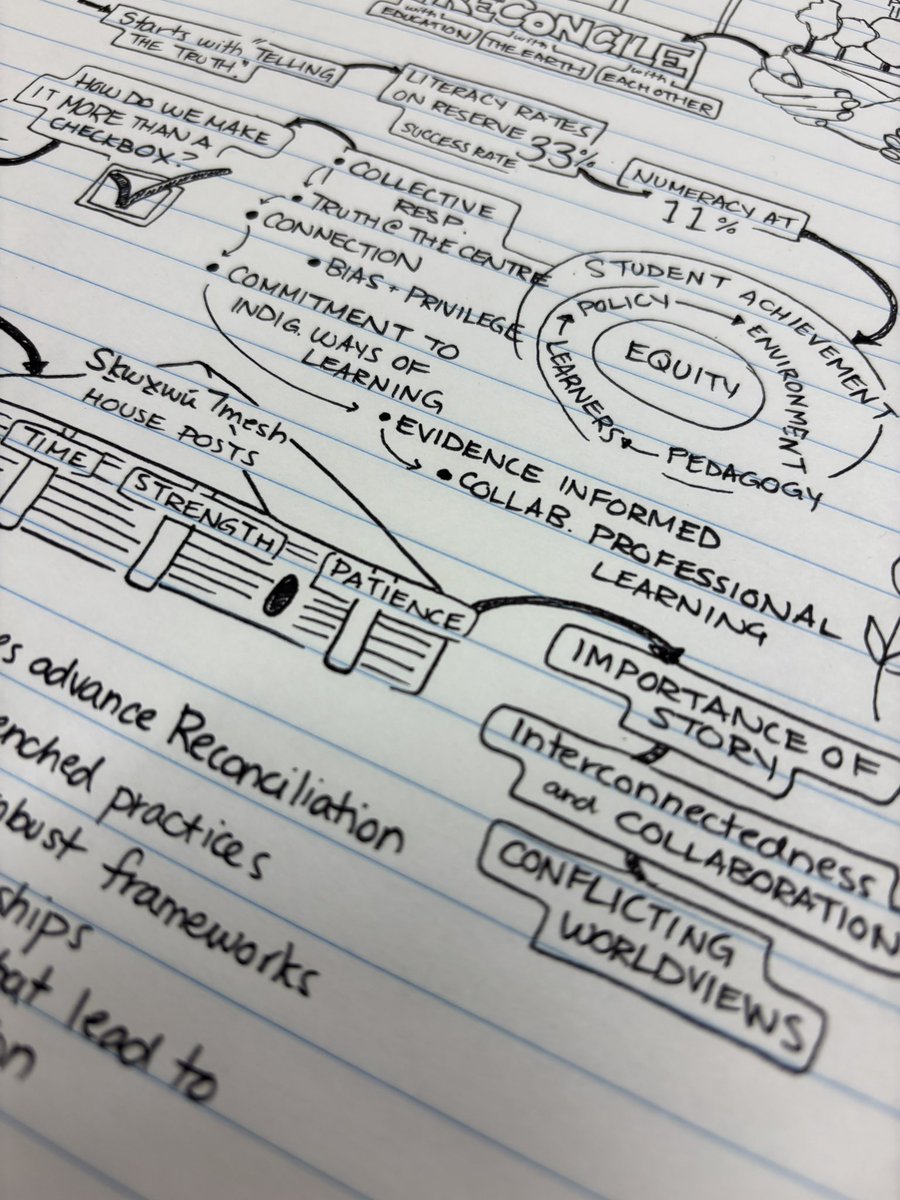 RECONCILE
with EDUCATION
with THE EARTH
with EACH OTHER
Starts with "TELLING
THE TRUTH."
LITERACY RATES
ON RESERVE 33%
SUCCESS RATE
NUMERACY AT
11%
HOW DO WE MAKE
IT MORE THAN A
CHECKBOX?
• COLLECTIVE
RESP.
• TRUTH @ THE CENTRE
• CONNECTION
• BIAS + PRIVILEGE
• COMMITMENT TO
INDIG. WAYS OF
LEARNING
• EVIDENCE INFORMED
• COLLAB. PROFESSIONAL
LEARNING
STUDENT ACHIEVEMENT
POLICY
ENVIRONMENT
PEDAGOGY
LEARNERS
EQUITY
Sḵwx̱wú7mesh
HOUSE POSTS
TIME
STRENGTH
PATIENCE
IMPORTANCE OF
STORY
Interconnectedness
and COLLABORATION
CONFLICTING
WORLDVIEWS
advance Reconciliation
practices
frameworks
lead to